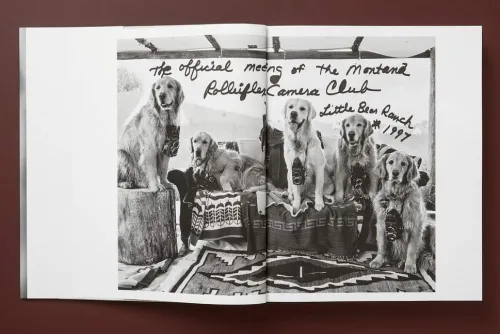 The official meeng of the Montana
Rolleiflex Camera Club
Little Bear Ranch
# 1997